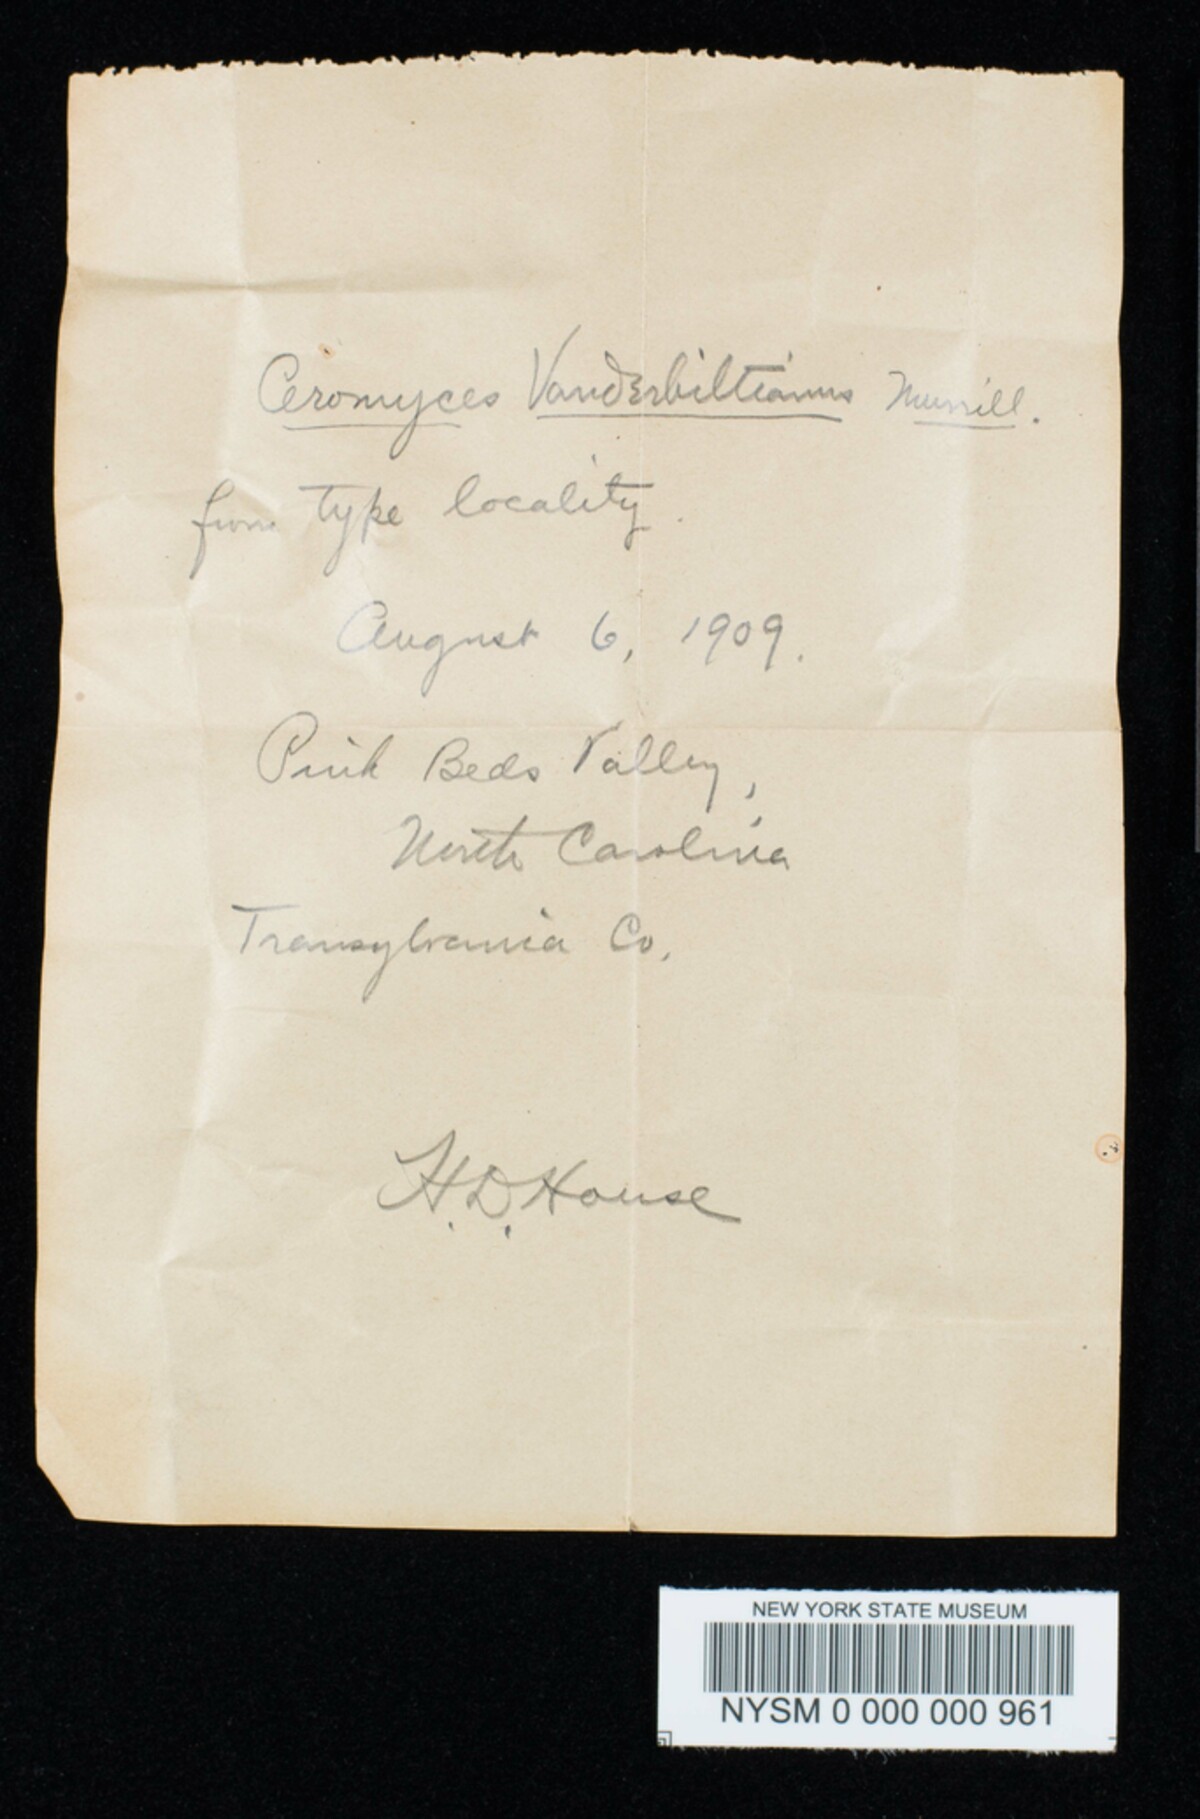 Ceromyces Vanderbiltianus Murrill.
from type locality.
August 6, 1909.
Pink Beds Valley,
North Carolina
Transylvania Co.
H. D. House
NEW YORK STATE MUSEUM
NYSM 0 000 000 961